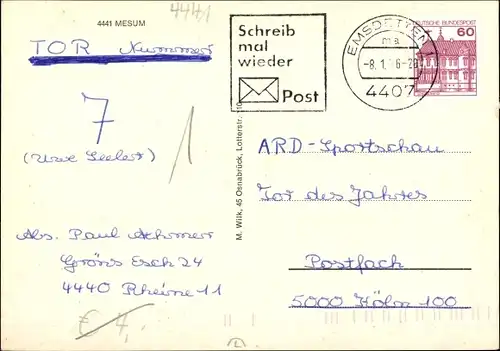 4441
4441 MESUM
TOR Nummer
7
(Uwe Seeler)
1
Abs. Paul
Gröns Esch 24
4440 Rheine 11
€ 4,
Schreib
mal
wieder
Post
EMSDETTEN
ma
-8.1. 6-20
4407
DEUTSCHE BUNDESPOST
60
M. Wilk, 45 Osnabrück, Lotterstr. 110
ARD-Sportschau
Tor des Jahres
Postfach
5000 Köln 100
L